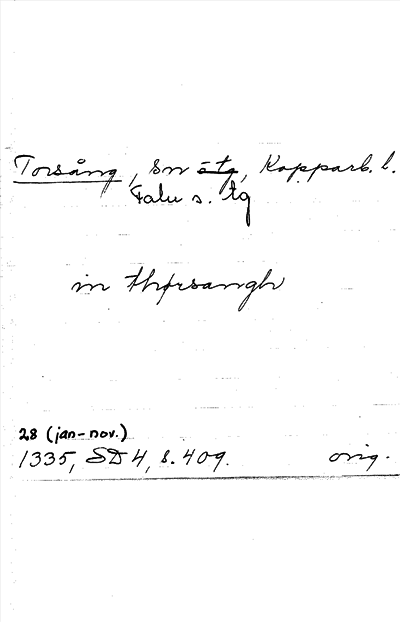 Torsång, sn ~~ötg~~, Kopparb. l.
Falu s. tg
in thorsangh
28 (jan-nov.)
1335, SD 4, s. 409. orig.